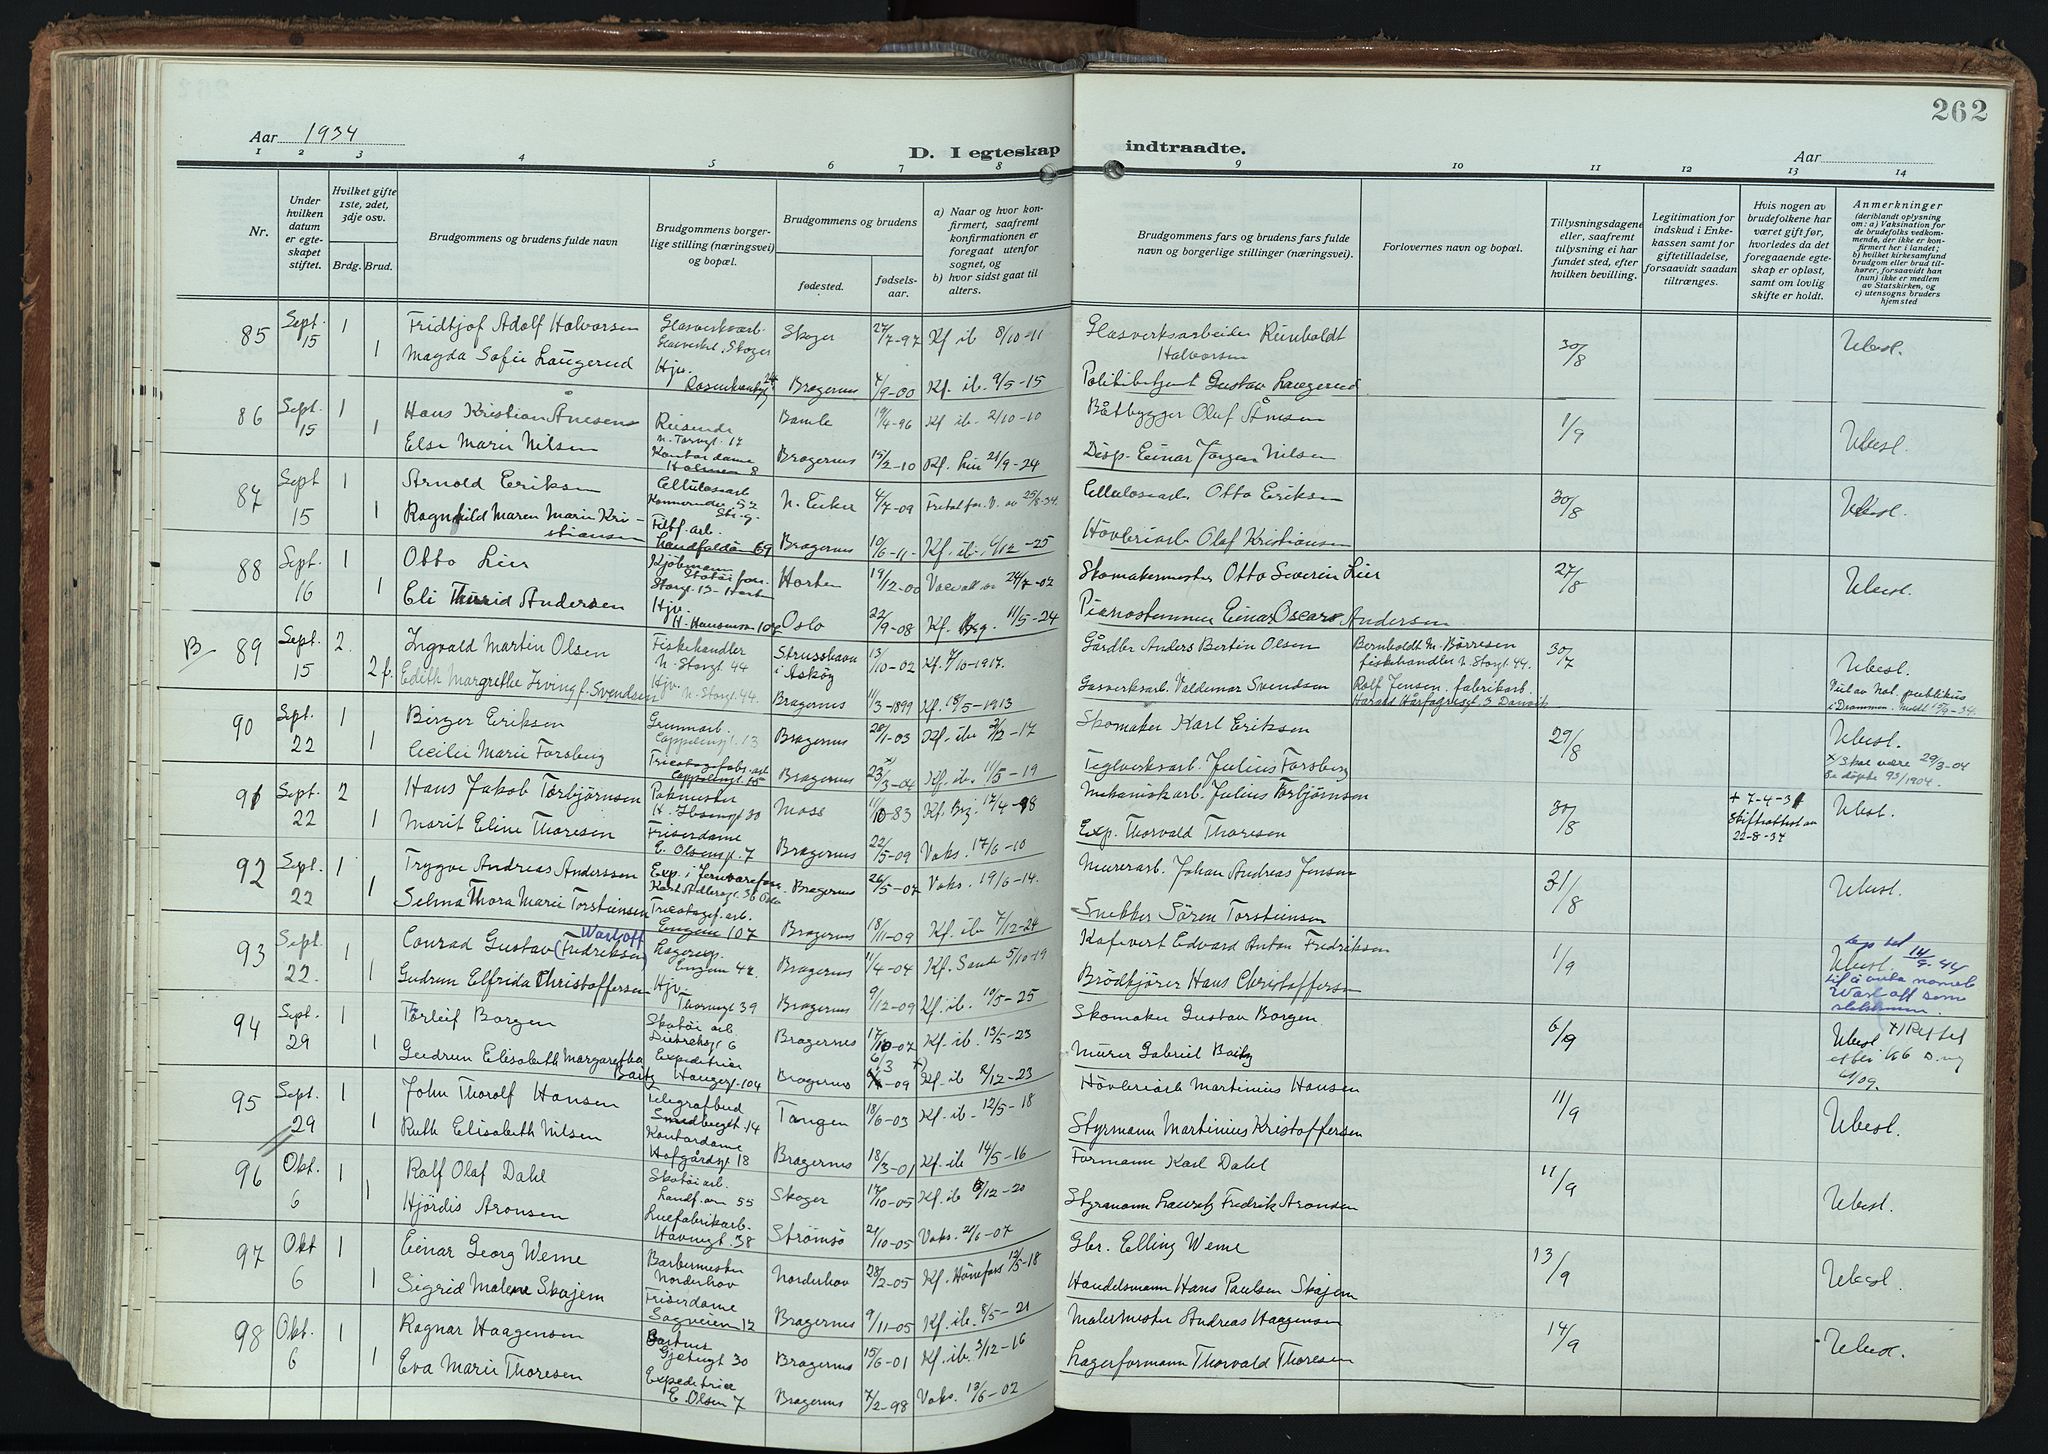 262
Aar 1934
D. I egteskap indtraadte.
Aar
1 2 3 4 5 6 7 8 9 10 11 12 13 14
Nr.
Under hvilken datum er egteskapet stiftet.
Hvilket gifte 1ste, 2det, 3dje osv.
Brdg. Brud.
Brudgommens og brudens fulde navn
Brudgommens borgerlige stilling (næringsvei) og bopæl.
Brudgommens og brudens
fødested. fødselsaar.
a) Naar og hvor konfirmert, saafremt konfirmationen er foregaat utenfor sognet, og
b) hvor sidst gaat til alters.
Brudgommens fars og brudens fars fulde navn og borgerlige stillinger (næringsvei).
Forlovernes navn og bopæl.
Tillysningsdagene eller, saafremt tillysning ei har fundet sted, efter hvilken bevilling.
Legitimation for indskud i Enkekassen samt for giftetilladelse, forsaavidt saadan tiltrænges.
Hvis nogen av brudefolkene har været gift før, hvorledes da det foregaaende egteskap er opløst, samt om lovlig skifte er holdt.
Anmerkninger
(deriblandt oplysning om: a) Vaksination for de brudefolks vedkommende, der ikke er konfirmert her i landet; b) hvilket kirkesamfund brudgom eller brud tilhører, forsaavidt han (hun) ikke er medlem av Statskirken, og c) utensogns bruders hjemsted
85 Sept. 15 1 Fridtjof Adolf Halvorsen Glasverksarb. Glasverket, Skoger Skoger 27/7-97 Kf ib 8/10-11 Glasverksarbeider Reinholdt Halvorsen 30/8 Ubesl.
1 Magda Sofie Laugerud Hjv. Rosenkrantzgt. Bragernes 4/9-00 Kf. ib. 9/5-15 Politibetjent Gustav Laugerud
86 Sept. 15 1 Hans Kristian Ånesen Reisende N. Torvgt. 17 Bamle 19/4-96 Kf ib. 2/10-10 Båtbygger Olaf Ånesen 1/9 Ubesl.
1 Else Marie Nilsen Kontordame Holmen 8 Bragernes 15/2-10 Kf. Lier 21/9-24 Disp. Einar Jørgen Nilsen
87 Sept 15 1 Arnold Eriksen Cellulosearb. 52 N. Eiker 4/7-09 25/8-34. Cellulosearb. Otto Eriksen 30/8 Ubesl.
1 Ragnhild Maren Marie Kristiansen Filtf. arb. Landfaldö 69 Bragernes 19/6-11 Kf. ib. 6/12-25 Hövleriarb Olaf Kristiansen
88 Sept. 16 1 Otto Lier Kjöbmann Storgt. 13 - Horten Horten 19/12-00 24/7-02 Skomakermester Otto Severin Lier 27/8 Ubesl.
1 Eli Thurid Andersen Hjv. H. Hansensv. Oslo 22/9-08 Kf. Brg. 11/5-24 Pianostemmer Einar Oscar Andersen
B 89 Sept. 15 2 Ingvald Martin Olsen Fiskehandler N. Storgt 44 Strusshavn i Askøy 13/10-02 Kf. 7/10-1917. Gårdbr Anders Bertin Olsen Bernholdt M. Börresen fiskehandler N. Storgt. 44. 30/7 Ubesl.
2 f. Edith Margrethe Irving f. Svendsen Hjv. N. Storgt. 44. Bragernes 11/3-1899 Kf. 18/5-1913 Gasverksarb. Valdemar Svendsen Rolf Jensen, fabrikarb. Harald Hårfagresgt. 3 Danvik Viet av Not. publikus i Drammen. Meldt 15/9-34.
90 Sept. 22 1 Birger Eriksen Grunnarb. Cappelensgt. 13 Bragernes 20/1-03 Kf. ib. 2/12-17 Skomaker Karl Eriksen 29/8 Ubesl.
1 Cecilie Marie Forsberg Tricotagefabr. arb. Cappelensgt. 15 Bragernes 23/3-04 x) Kf. ib. 11/5-19 Teglverksarb. Julius Forsberg x) Skal være 29/3-04 Se döpte 93/1904.
91 Sept. 22 2 Hans Jakob Torbjørnsen Pakmester H. Ibsensgt 30 Moss 11/10-83 Kf. Brg. 17/4-98 Mekaniskarb. Julius Torbjørnsen 30/8 + 7-4-31 Skifteattest av 22-8-34 Ubesl.
1 Marit Eline Thoresen Friserdame E. Olsensgt. 7 Bragernes 22/5-09 Vaks. 17/6-10 Exp. Thorvald Thoresen
92 Sept. 22 1 Trygve Andreas Anderssen Exp. i Jernvareforr. Karl Adlersgt. 36 Oslo Bragernes 26/5-07 Vaks. 19/6-14. Murerarb. Johan Andreas Jensen 31/8 Ubesl.
1 Selma Thora Marie Torstensen Tricotagef. arb. Engene 107 Bragernes 18/11-09 Kf. ib. 7/12-24 Snekker Sören Torstensen
93 Sept. 22 1 Conrad Gustav (Fredriksen) Warloff Lagereksp. Engene 42 Bragernes 11/4-04 Kf. Sande 5/10-19 Kafevert Edvard Anton Fredriksen 1/9 Ubesl. 14/9-44 til å anta navnet Warloff som slektsnavn.
1 Gudrun Elfrida Christoffersen Hjv. Thornegt 39 Bragernes 9/12-09 Kf. ib. 10/5-25 Brödkjörer Hans Christoffersen
94 Sept. 29 1 Torleif Borgen Skotöi arb. 6 Bragernes 17/10-07 Kf. ib. 13/5-23 Skomaker Gustav Borgen 6/9 Ubesl x) Rettet
1 Gudrun Elisabeth Margaretha Baitz Expeditrice Haugesgt. 104 Bragernes 6/3-09 x) Kf. ib 2/12-23 Murer Gabriel Baitz
95 Sept. 29 1 John Thorolf Hansen Telegrafbud 14 Tangen 18/6-03 Kf. ib. 12/5-18 Hövleriarb Martinius Hansen 11/9 Ubesl.
1 Ruth Elisabeth Nilsen Kontordame Hofgårdsgt 18 Bragernes 18/3-01 Kf. ib 14/5-16 Styrmann Martinius Kristoffersen
96 Okt. 6 1 Rolf Olaf Dahl Skotöiarb. 55 Skoger 17/10-05 Kf. ib /12-20 Formann Karl Dahl 11/9 Ubesl.
1 Hjördis Aronsen Luefabrikarb. Havnegt. 38 Strømsø 21/10-05 Vaks. 21/6-07 Styrmann Lauritz Fredrik Aronsen
97 Okt 6 1 Einar Georg Weme Barbermester Norderhov Norderhov 28/2-05 Kf. Hönefoss 12/5-18 Gbr. Elling Weme 13/9 Ubesl.
1 Sigrid Malene Skajem Friserdame Sagveien 12 Bragernes 9/11-05 Kf. ib. 8/5-21 Handelsmann Hans Paulsen Skajem
98 Okt. 6 1 Ragnar Haagensen Gjetergt 30 Bragernes 15/6-01 Kf. ib. 3/12-16 Malermester Andreas Haagensen 14/9 Ubesl.
1 Eva Marie Thoresen Expeditrice E. Olsen 7 Bragernes 7/2-98 Vaks. 13/6-02 Lagerformann Thorvald Thoresen